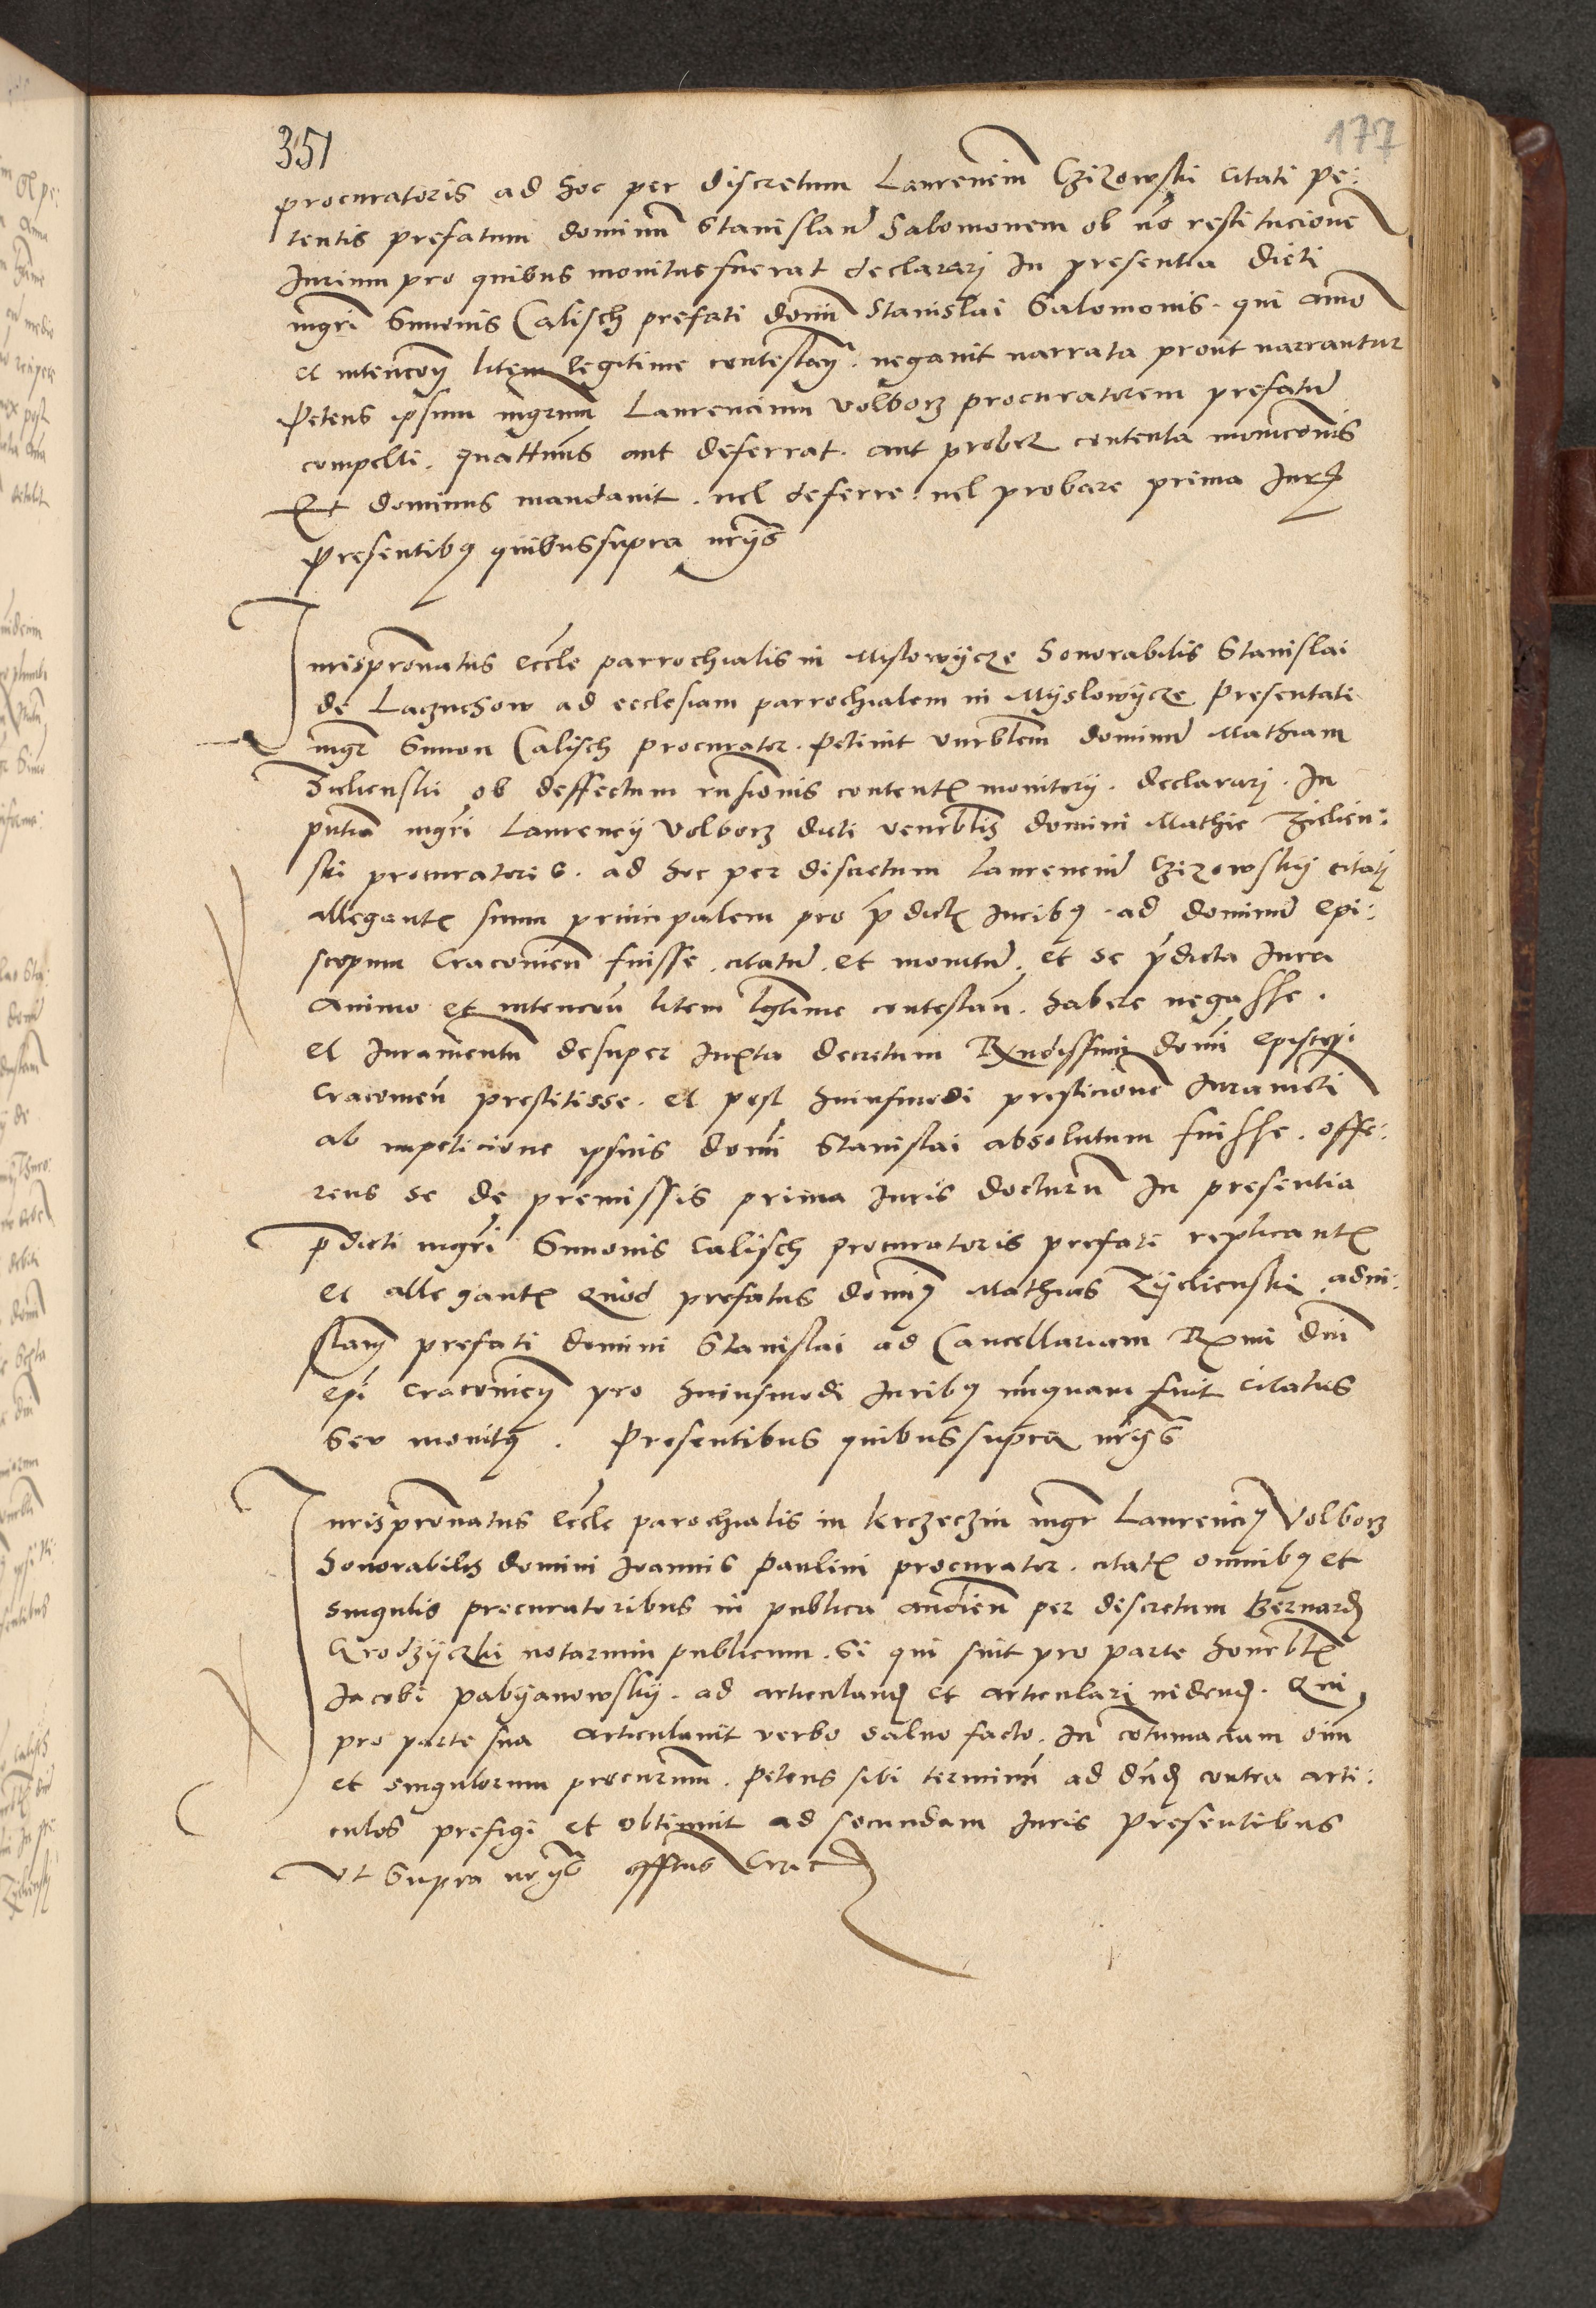 351
177
procuratoris ad hoc per discretum Laurenciũ Czizowski citati pe:
tentis prefatum dominũ Stanislaũ Salomonem ob nõ restitucionẽ
Iurium pro quibus monitus fuerat declararj In presentia dicti
mgrĩ Simonis Calisch prefati domĩ Stanislai Salomonis. qui aĩmo
et intencoñ litem legitime contestañ. negauit narrata prout narrantur
Petens ipsum mgrum Laurencium Volborz procuratorem prefatũ
compelli. quattinus aut deferrat. aut probet contenta monicõnis
Et dominus mandauit. uel deferre. uel probare prima Iurꝭ
Presentibꝫ quibus supra nrijs
Iurisprõnatus ecclẽ parrochialis in Mislowÿcze honorabilis Stanislai
de Laczuchow ad ecclesiam parrochialem in Mÿslowÿcze presentati
mgr Simon Calisch procurator. Petiuit venrblem dominũ Mathiam
Zielienski ob deffectum rñsionis contentꝭ monitorij. declararj. In
pñtia mgrĩ Laurencij Volborz dicti venrblis domini Mathie Zielien:
ski procuratoris. ad hoc per discretum Laurenciũ Czizowskÿ citatj
allegantꝭ suum principalem pro p̃dictꝭ Iuribꝫ. ad dominũ epi:
scopum Cracouieñ fuisse. citatũ. et monitũ. et se p̃dicta Iura
animo et intencoñ litem lgtime contestañ. habere negasse.
et Iuramentũ desuper Iuxta decretum Rxndissimi domĩ episcopi
Cracouieñ prestitisse. et post huiusmodi presticionẽ Iuramẽti
ab impeticione ipsius domĩ Stanislai absolutum fuisse. offe:
rens se de premissis prima Iuris docturũ In presentia
p̃dicti mgrĩ Simonis Calisch procuratoris prefati replicantꝭ
et allegantꝭ Quod prefatus dominꝫ Mathias Zÿelienski adin:
stañ prefati domini Stanislai ad Cancellariam Rxmi dñi
epĩ Cracouieñ pro huiusmodi Iuribꝫ nũquam fuit citatus
seu monitꝫ. Presentibus quibus supra nrijs
Iurisprõnatus ecclẽ parochialis in Krczeczin mgr Laurenciꝫ Volborz
honorabilis domini Ioannis Paulini procurator. citatꝭ omnibꝫ et
singulis procuratoribus in publica audieñ per discretum Bernardꝭ
Grodzÿczki notarium publicum. Si qui sint pro parte honrblꝭ
Jacobi Pabÿanowskÿ. ad articulandꝭ et articulari videndꝭ. Qui
pro parte sua articulauit verbo saluo facto. In cõtumaciam oĩm
et singulorum procurum̃. Petens sibi terminũ ad dñdꝭ contra arti:
culos prefigi et obtinuit ad secundam Iuris Presentibus
Vt Supra nrijs